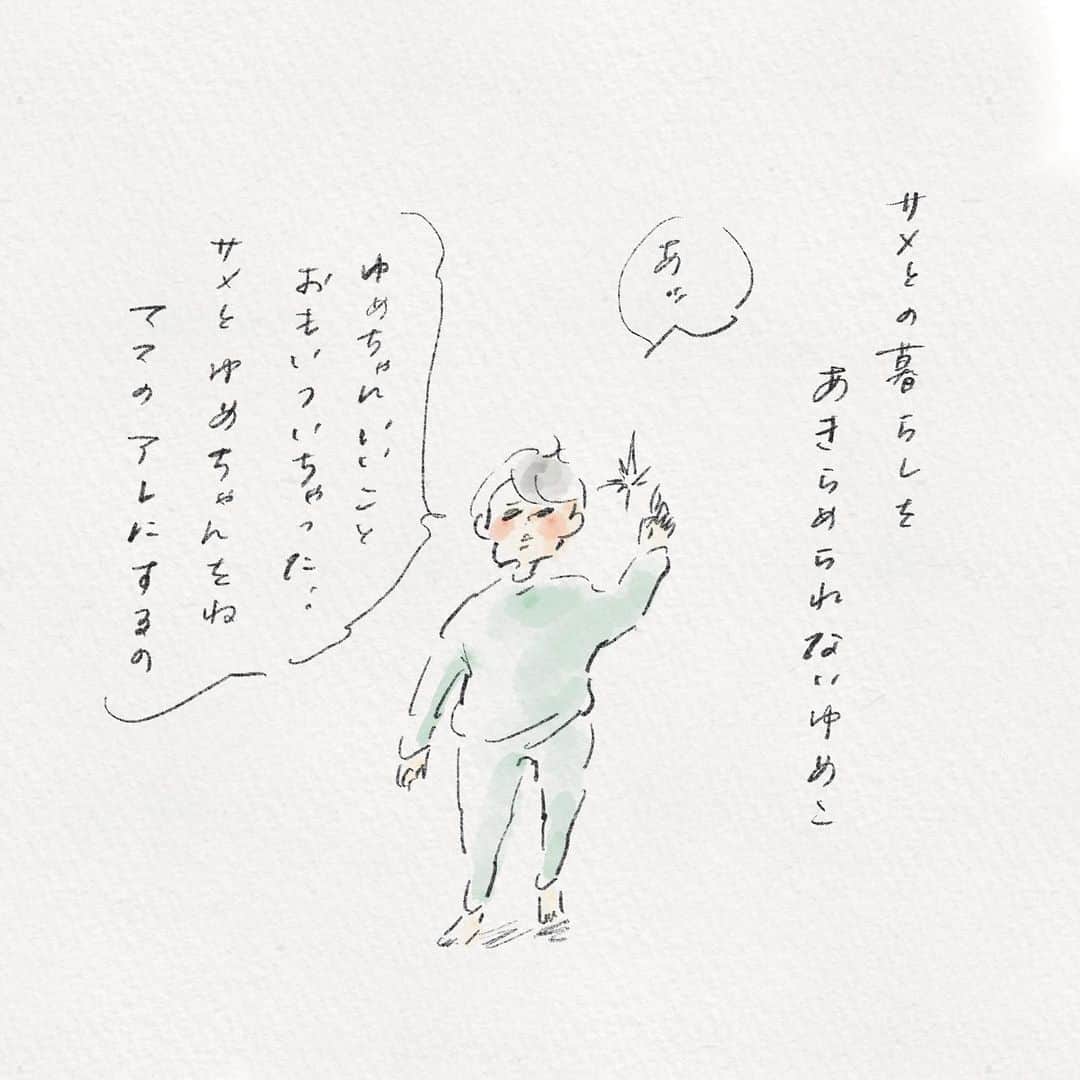 サメとの暮らしを
あきらめられないゆめこ
あ!!
ゆめちゃんいいこと
おもいついちゃった..
サメとゆめちゃんをね
ママのアレにするの